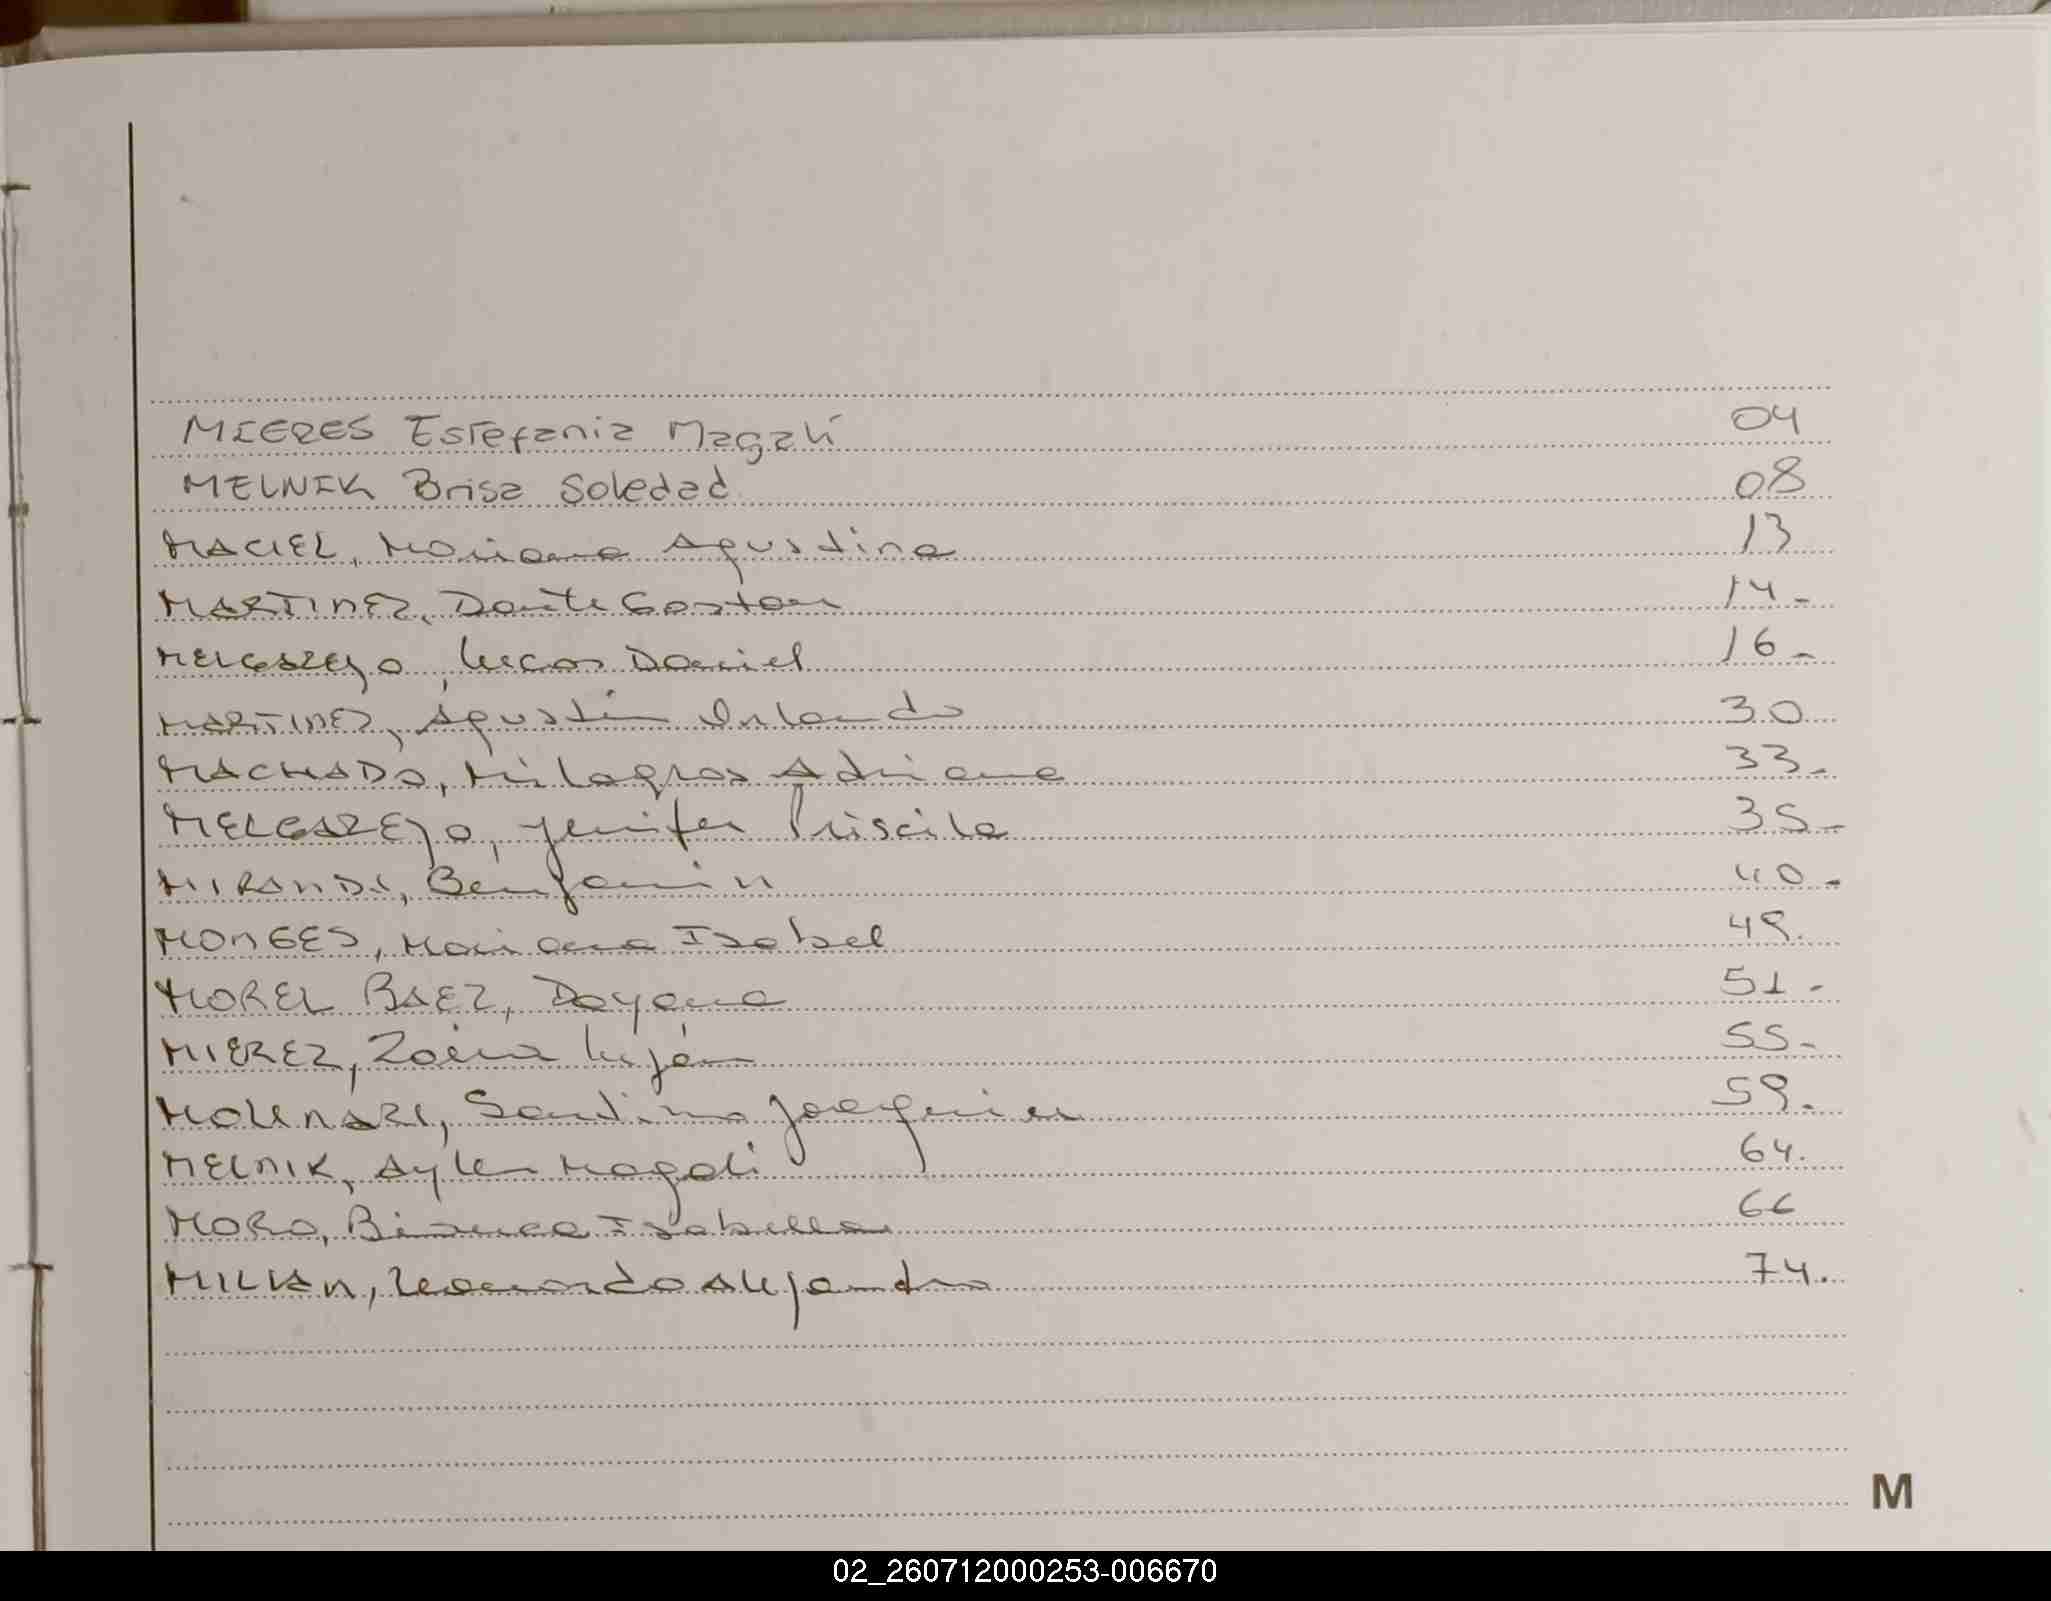 MIERES Estefania Magalí 04
MELNIK Brisa Soledad 08
MACIEL, Mariana Agustina 13
MARTINEZ, Dante Gaston 14.
MELGAREJO, Lucas Daniel 16.
MARTINEZ, Agustin Orlando 30
MACHADO, Milagros Adriana 33.
MELGAREJO, Jenifer Priscila 35.
MIRANDA, Benjamin 40.
MONGES, Mariana Isabel 49.
MOREL BAEZ, Dayana 51.
MIEREZ, Luján 55.
MOLINARI, Santino Joaquin 59.
MELNIK, Aylen Magali 64.
MORO, Bianca Isabella 66
MILIAN, Leonardo Alejandro 74.
M
02_260712000253-006670